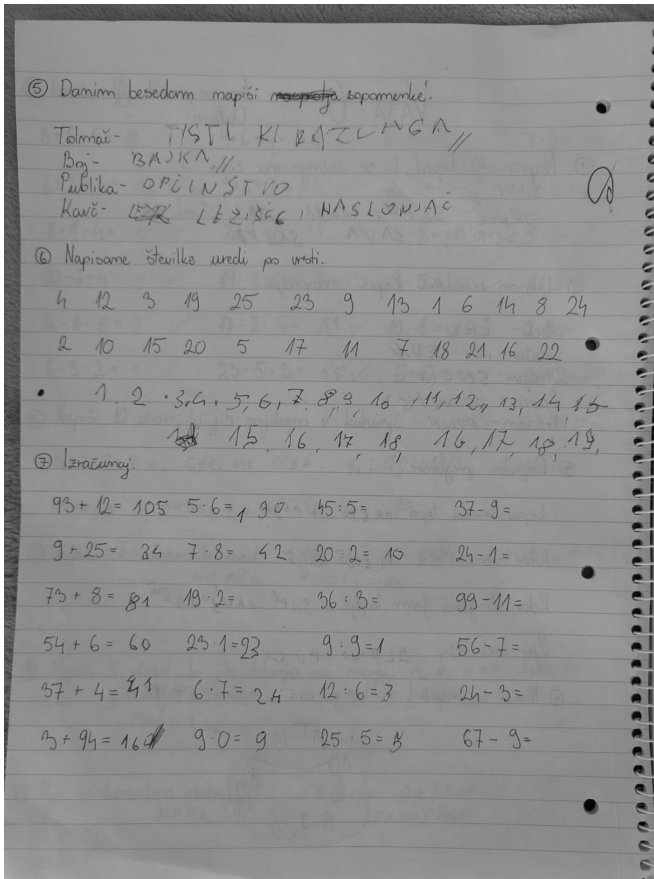 ⑤ Danim besedam napiši sopomenke:
Tolmač- TISTI KI RAZLAGA
Boj- BAJKA
Publika- OPČINSTVO
Kavč- LEŽIŠČE, NASLONJAČ
⑥ Napisane številke uredi po vrsti.
4 12 3 19 25 23 9 13 1 6 14 8 24
2 10 15 20 5 17 11 7 18 21 16 22
1. 2. 3. 4. 5, 6, 7. 8, 9, 10, 11, 12, 13, 14, 15
15. 16, 17, 18, 16, 17, 18, 19,
⑦ Izračunaj:
93 + 12 = 105 5·6 = 1 90 45:5= 37-9=
9 + 25 = 34 7·8= 42 20:2= 10 24-1=
73 + 8 = 81 19·2= 36:3= 99-11=
54 + 6 = 60 23·1=23 9:9=1 56-7=
37 + 4 = 41 6·7= 24 12:6=3 24-3=
3 + 94 = 16 9·0= 9 25:5= 5 67-9=